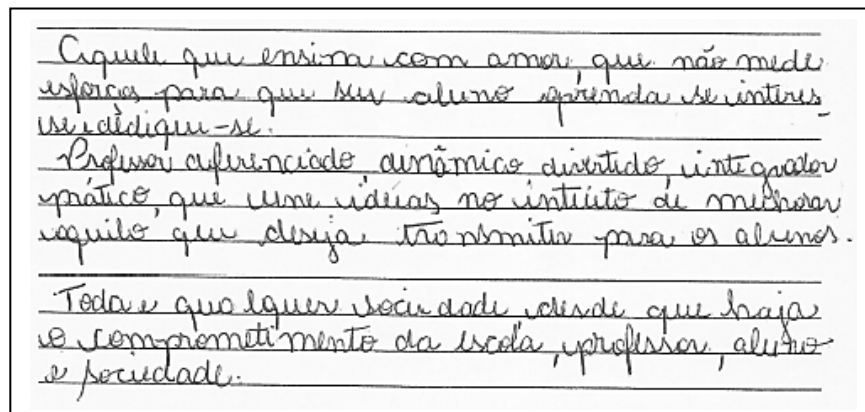 Aquele que ensina com amor, que não mede
esforços para que seu aluno aprenda se interes_
se, e dedique-se.
Professor diferenciado, dinâmico divertido, integrador
prático, que une idéias no intúito de melhorar
aquilo que deseja transmitir para os alunos.
Toda e qualquer sociedade, desde que haja
o comprometimento da escola, professor, aluno
e sociedade.